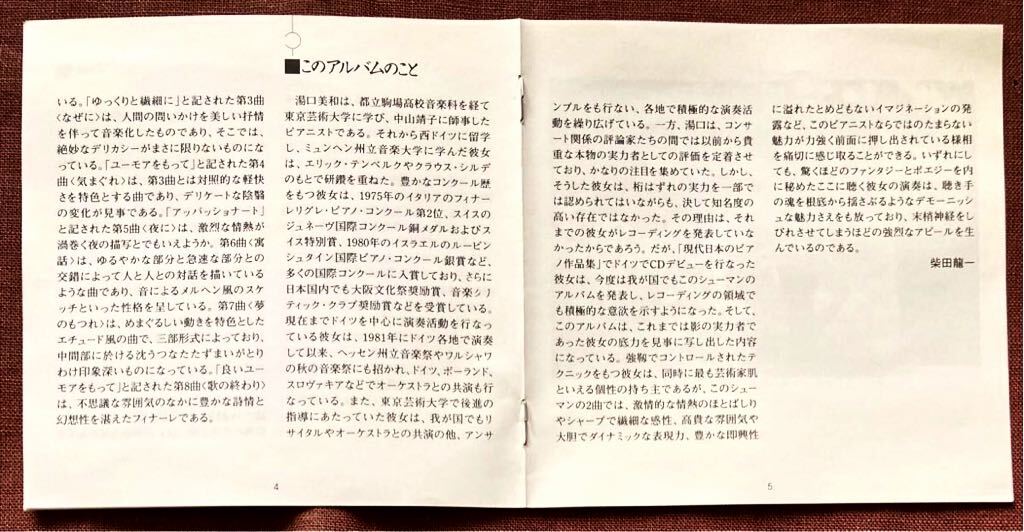 いる。「ゆっくりと繊細に」と記された第3曲
〈なぜに〉は、人間の問いかけを美しい抒情
を伴って音楽化したものであり、そこでは、
絶妙なデリカシーがまさに限りないものにな
っている。「ユーモアをもって」と記された第4
曲〈気まぐれ〉は、第3曲とは対照的な軽快
さを特色とする曲であり、デリケートな陰翳
の変化が見事である。「アッパッショナート」
と記された第5曲〈夜に〉は、激烈な情熱が
渦巻く夜の描写とでもいえようか。第6曲〈寓
話〉は、ゆるやかな部分と急速な部分との
交錯によって人と人との対話を描いている
ような曲であり、音によるメルヘン風のスケ
ッチといった性格を呈している。第7曲〈夢
のもつれ〉は、めまぐるしい動きを特色とした
エチュード風の曲で、三部形式によっており、
中間部に於ける沈うつなたたずまいがとり
わけ印象深いものになっている。「良いユー
モアをもって」と記された第8曲〈歌の終わり〉
は、不思議な雰囲気のなかに豊かな詩情と
幻想性を湛えたフィナーレである。
■このアルバムのこと
湯口美和は、都立駒場高校音楽科を経て
東京芸術大学に学び、中山靖子に師事した
ピアニストである。それから西ドイツに留学
し、ミュンヘン州立音楽大学に学んだ彼女
は、エリック・テンベルクやクラウス・シルデ
のもとで研鑽を重ねた。豊かなコンクール歴
をもつ彼女は、1975年のイタリアのフィナー
レリグレ・ピアノ・コンクール第2位、スイスの
ジュネーヴ国際コンクール銅メダルおよびス
イス特別賞、1980年のイスラエルのルービン
シュタイン国際ピアノ・コンクール銀賞など、
多くの国際コンクールに入賞しており、さらに
日本国内でも大阪文化祭奨励賞、音楽クリ
ティック・クラブ奨励賞などを受賞している。
現在までドイツを中心に演奏活動を行なっ
ている彼女は、1981年にドイツ各地で演奏
して以来、ヘッセン州立音楽祭やワルシャワ
の秋の音楽祭にも招かれ、ドイツ、ポーランド、
スロヴァキアなどでオーケストラとの共演も行
なっている。また、東京芸術大学で後進の
指導にあたっていた彼女は、我が国でもリ
サイタルやオーケストラとの共演の他、アンサ
4
ンブルをも行ない、各地で積極的な演奏活
動を繰り広げている。一方、湯口は、コンサ
ート関係の評論家たちの間では以前から貴
重な本物の実力者としての評価を定着させ
ており、かなりの注目を集めていた。しかし、
そうした彼女は、桁はずれの実力を一部で
は認められてはいながらも、決して知名度
の高い存在ではなかった。その理由は、それ
までの彼女がレコーディングを発表していな
かったからであろう。だが、「現代日本のピア
ノ作品集」でドイツでCDデビューを行なった
彼女は、今度は我が国でもこのシューマンの
アルバムを発表し、レコーディングの領域で
も積極的な意欲を示すようになった。そして、
このアルバムは、これまでは影の実力者で
あった彼女の底力を見事に写し出した内容
になっている。強靱でコントロールされたテ
クニックをもつ彼女は、同時に最も芸術家肌
といえる個性の持ち主であるが、このシュー
マンの2曲では、激情的な情熱のほとばしり
やシャープで繊細な感性、高貴な雰囲気や
大胆でダイナミックな表現力、豊かな即興性
に溢れたとめどもないイマジネーションの発
露など、このピアニストならではのたまらない
魅力が力強く前面に押し出されている様相
を痛切に感じ取ることができる。いずれにし
ても、驚くほどのファンタジーとポエジーを内
に秘めたここに聴く彼女の演奏は、聴き手
の魂を根底から揺さぶるようなデモーニッシ
ュな魅力さえをも放っており、末梢神経をし
びれさせてしまうほどの強烈なアピールを生
んでいるのである。
柴田龍一
5